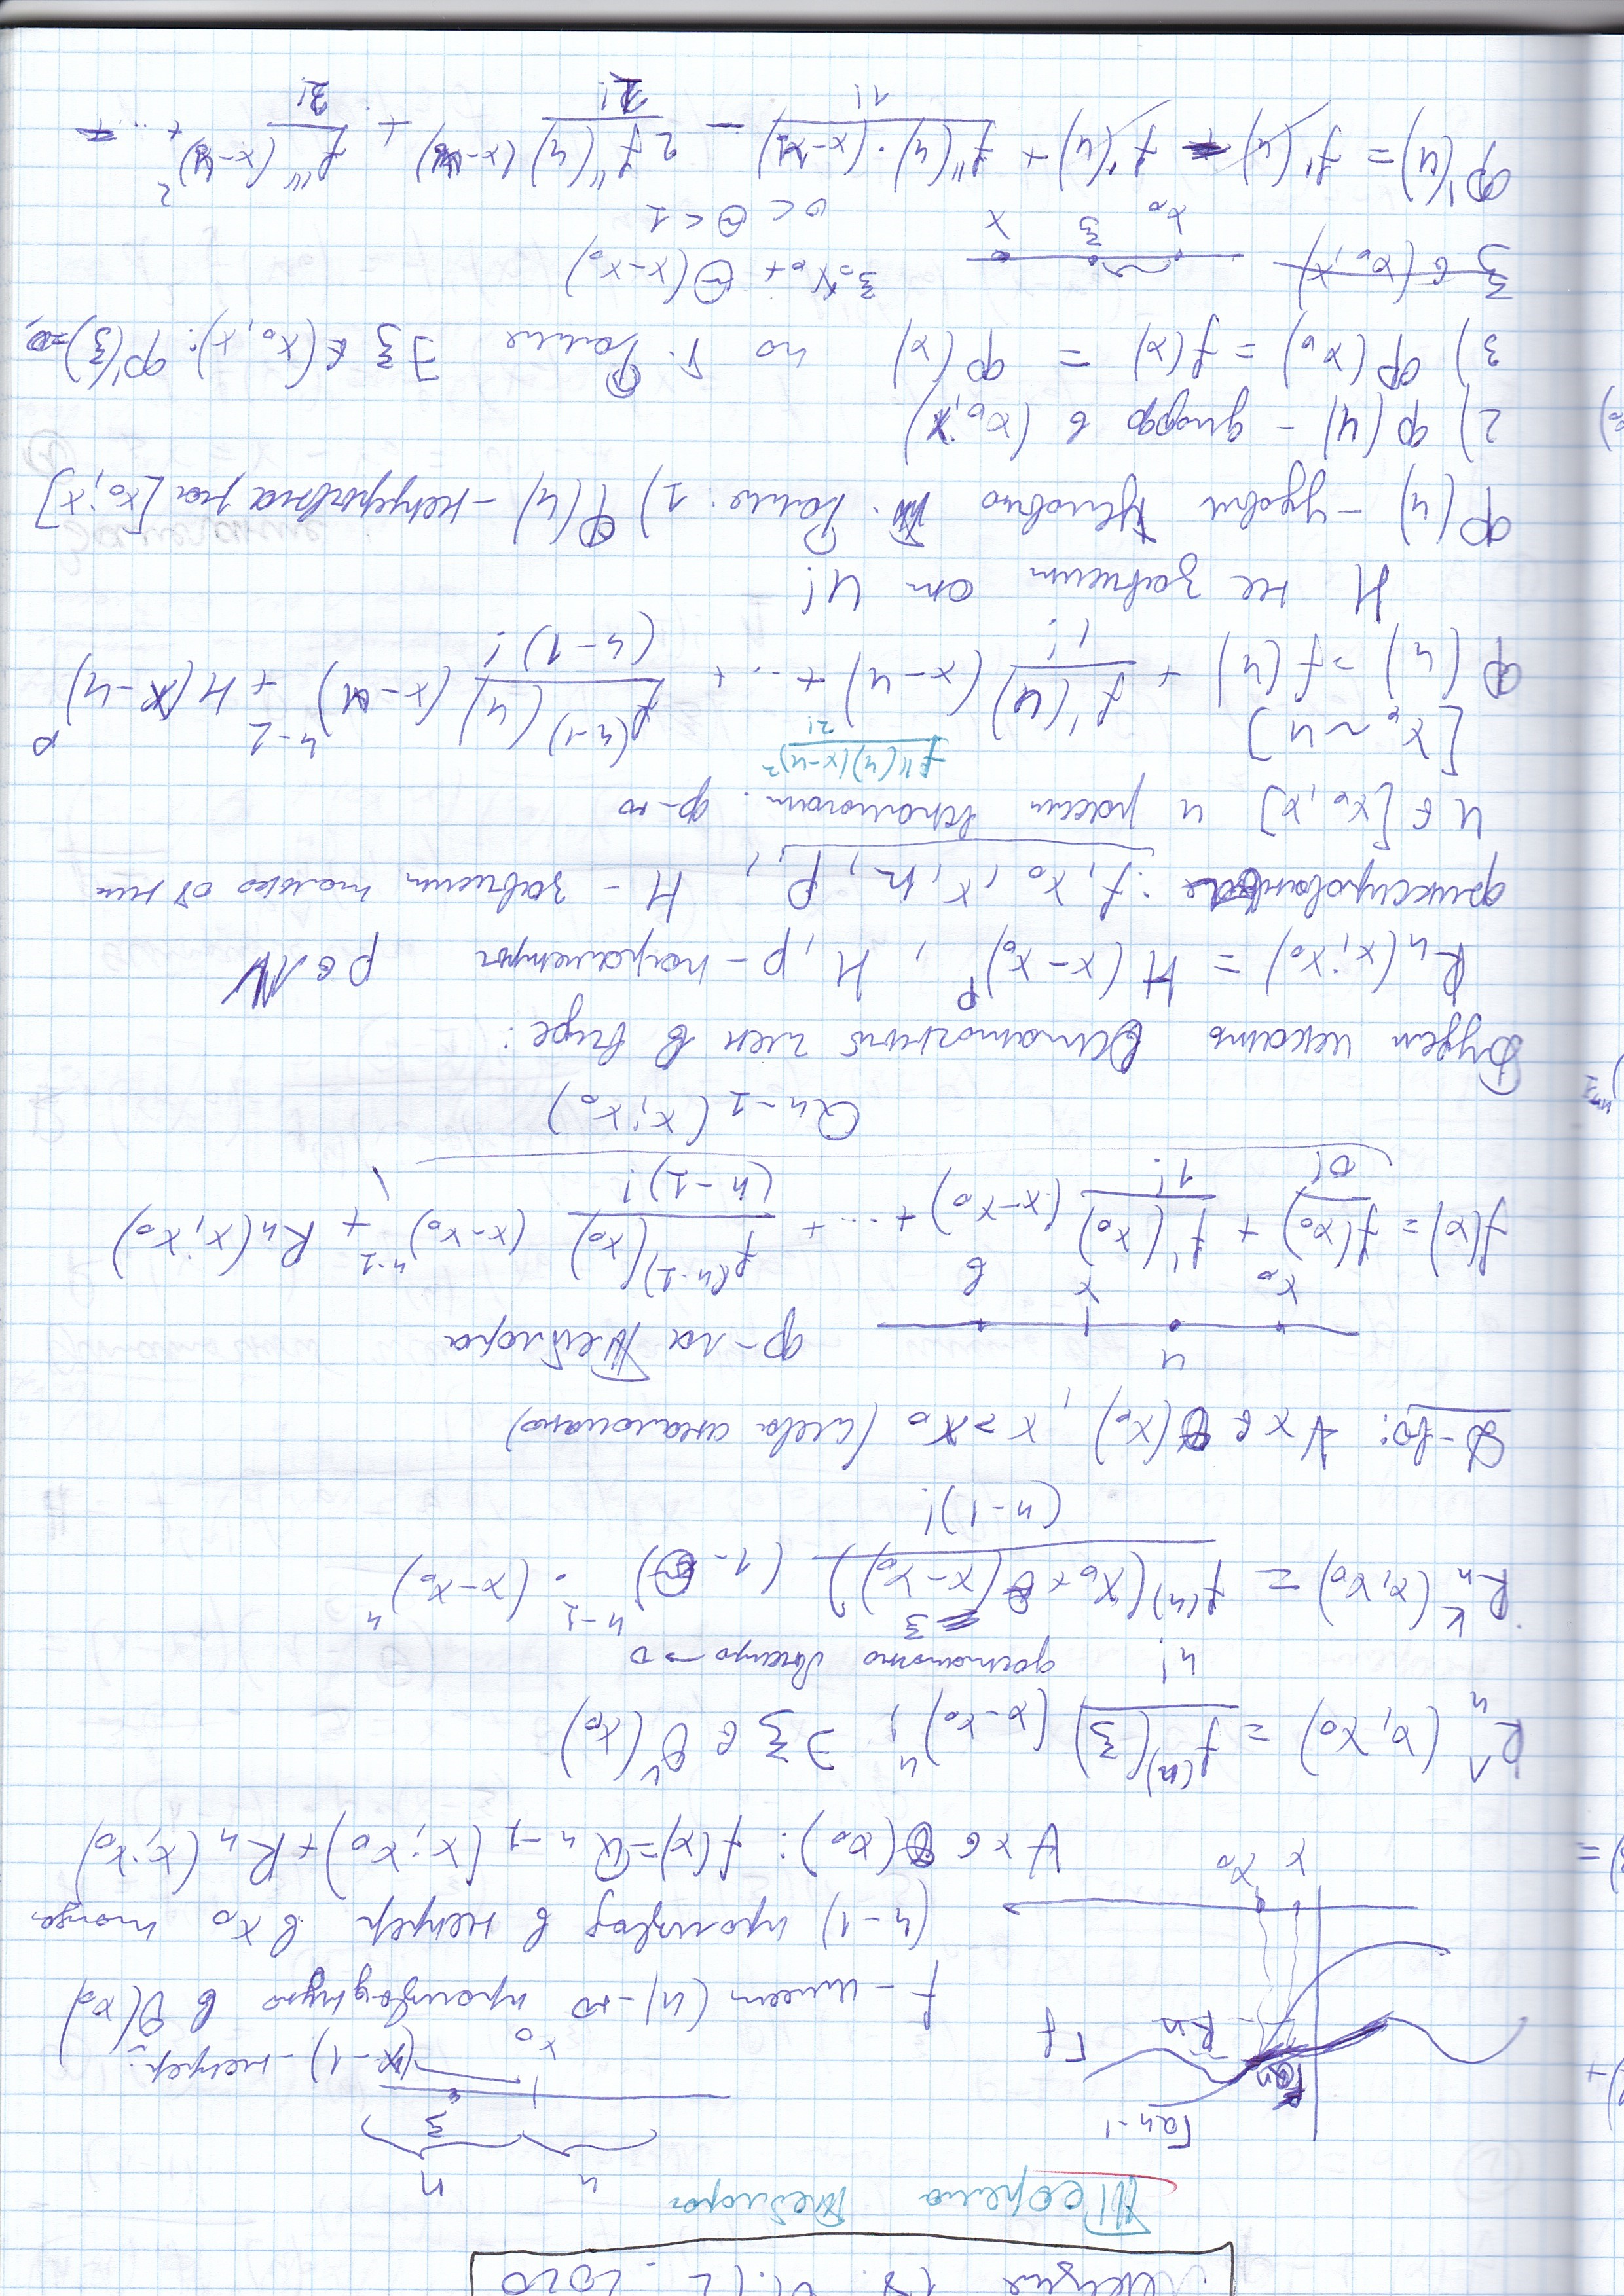 Лекция 18. 01.12.2020
Теорема Тейлора
n n
ξ
x₀
(n-1) - непрер.
Γ_{Q_{n-1}}
Γ_{Q_n}
R_n
Γ_f
x x₀
f - имеет (n)-ю производную в Ǒ(x₀)
(n-1) производ в непрер в x₀ тогда
∀x∈O(x₀): f(x)=Q_{n-1}(x;x₀)+R_n(x;x₀)
R_n^Л(x,x₀) = f^{(n)}(ξ)/n! (x-x₀)^n; ∃ξ∈Ǒ(x₀)
достаточно быстро → 0
R_n^K(x,x₀) = f^{(n)}(x₀+θ(x-x₀))/(n-1)! (1-θ)^{n-1}·(x-x₀)^n
=ξ
Д-во: ∀x∈O(x₀), x>x₀ (слева аналогично)
u
x₀ x b
ф-ла Тейлора
f(x) = f(x₀)/0! + f'(x₀)/1! (x-x₀)+...+ f^{(n-1)}(x₀)/(n-1)! (x-x₀)^{n-1} + R_n(x;x₀)
Q_{n-1}(x;x₀)
Будем искать Остаточный член в виде:
R_n(x;x₀) = H(x-x₀)^p, H, p - параметры p∈N
фиксированные: f, x₀, x, n, p, H - зависит только от них
u∈[x₀,x] и рассм вспомогат. ф-ю
[x₀ ~ u]
f''(u)(x-u)²/2!
Ф(u) = f(u) + f'(u)/1! (x-u)+...+ f^{(n-1)}(u)/(n-1)! (x-u)^{n-1} + H(x-u)^p
H не зависит от u!
Ф(u) - удовл условию т. Ролля: 1) Ф(u) - непрерывна на [x₀;x]
2) Ф(u) - дифф в (x₀,x)
3) Ф(x₀) = f(x) = Ф(x) по т. Ролля ∃ξ∈(x₀,x): Ф'(ξ)=0,
ξ∈(x₀,x)
x₀ ξ x
ξ=x₀+θ(x-x₀)
0<θ<1
Ф'(u) = f'(u) - f'(u) + f''(u)·(x-u)/1! - 2f''(u)/2! (x-u) + f'''/2! (x-u)² +...